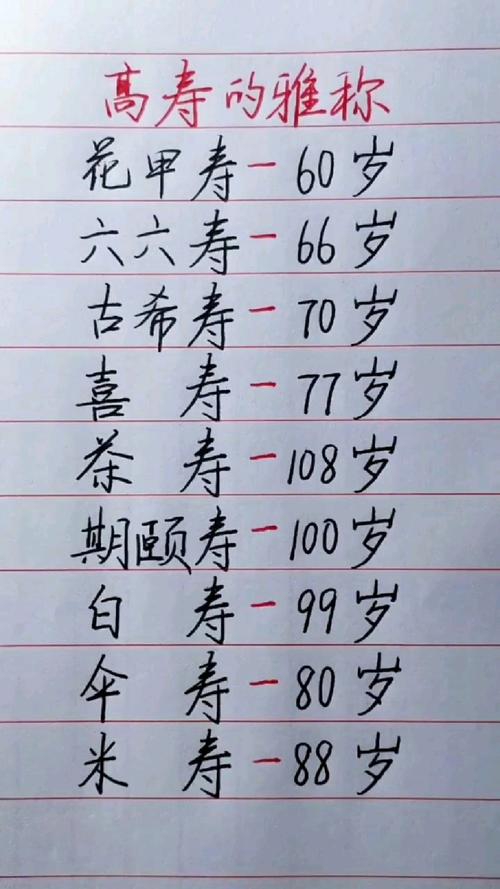 高寿的雅称
花甲寿-60岁
六六寿-66岁
古希寿-70岁
喜 寿-77岁
茶 寿-108岁
期颐寿-100岁
白 寿-99岁
伞 寿-80岁
米 寿-88岁